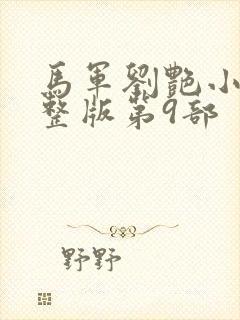 馬軍劉艷小
整版第9部
野野